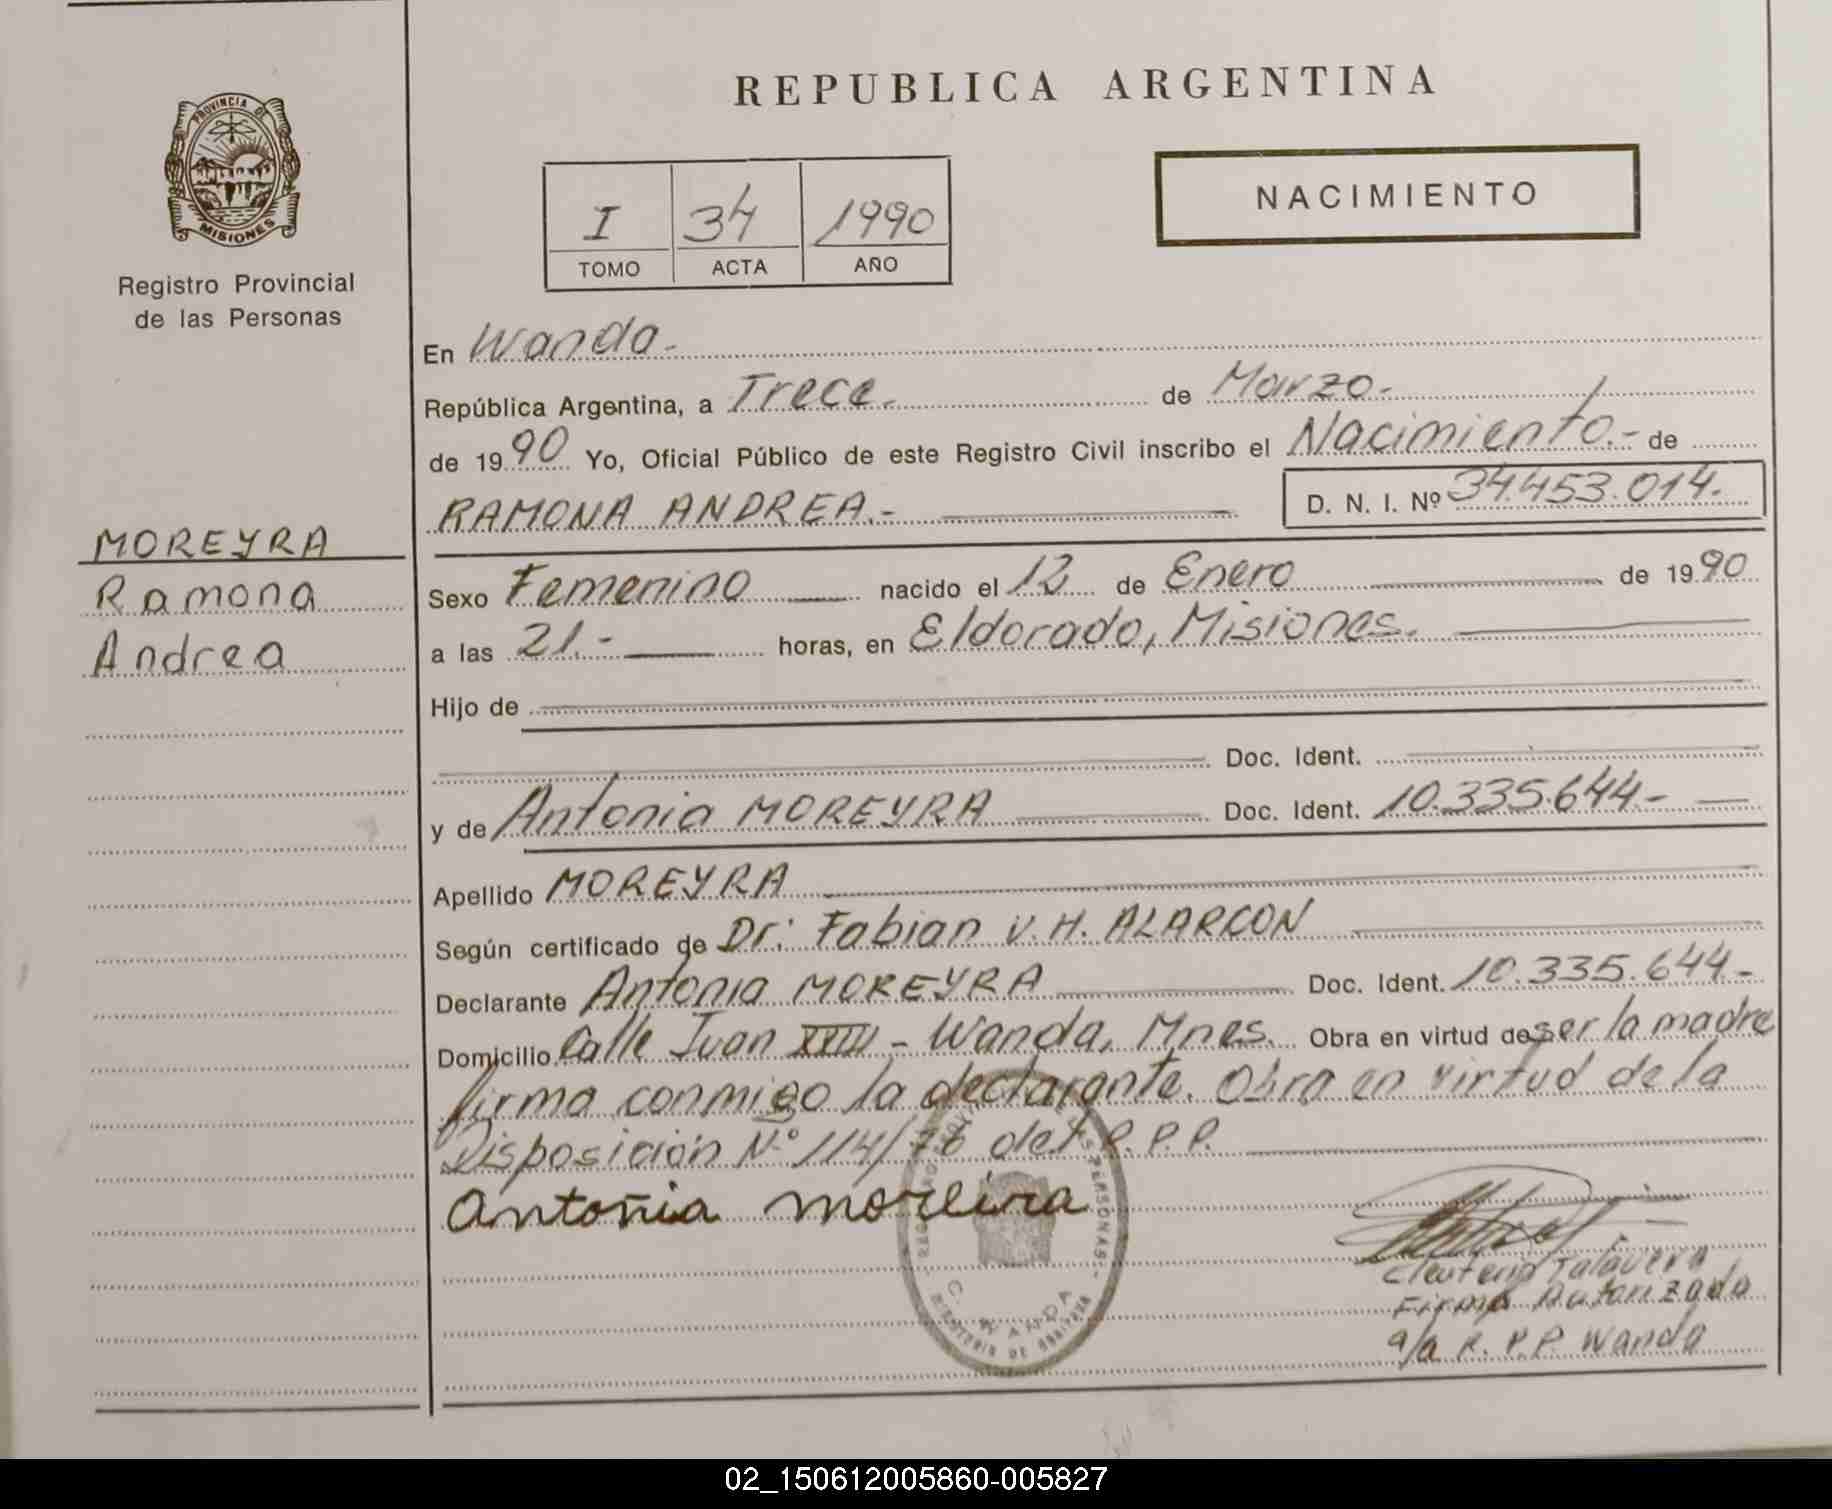 REPUBLICA ARGENTINA
PROVINCIA DE
MISIONES
Registro Provincial
de las Personas
MOREYRA
Ramona
Andrea
I 34 1990
TOMO ACTA AÑO
NACIMIENTO
En Wanda.-
República Argentina, a Trece.- de Marzo.-
de 1990 Yo, Oficial Público de este Registro Civil inscribo el Nacimiento.- de
RAMONA ANDREA.- D. N. I. Nº 34.453.014.
Sexo Femenino nacido el 12 de Enero de 1990
a las 21.- horas, en Eldorado, Misiones.
Hijo de
Doc. Ident.
y de Antonia MOREYRA Doc. Ident. 10.335.644-
Apellido MOREYRA
Según certificado de Dr: Fabian V. H. ALARCON
Declarante Antonia MOREYRA Doc. Ident. 10.335.644-
Domicilio Calle Juan XXIII - Wanda, Mnes. Obra en virtud de ser la madre
firma conmigo la declarante. Obra en virtud de la
Disposición N° 114/76 del R.P.P.
Antoñia moreira
PERSONAS
WANDA
Talavera
Firma Autorizada
a/a R.P.P. Wanda
02_150612005860-005827